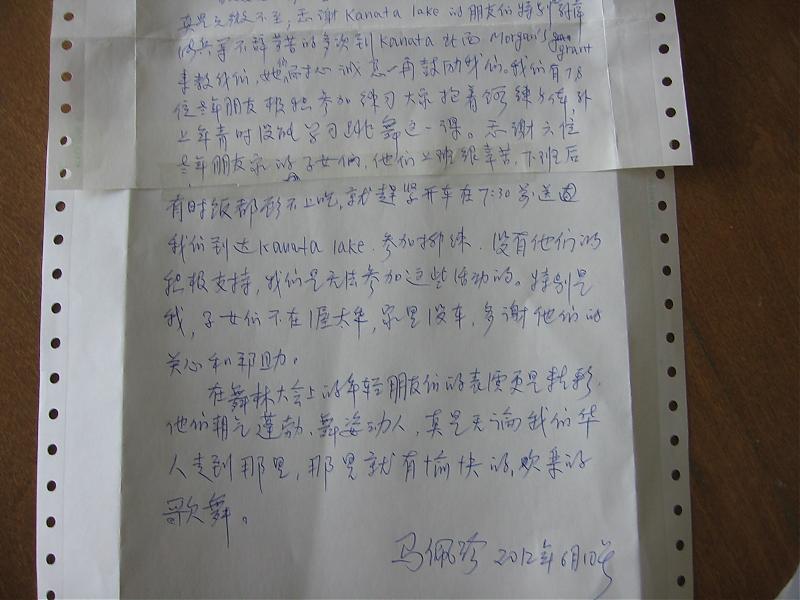 真是 感谢 Kanata lake 的朋友们特别
不辞辛苦的多次到 Kanata 北面 Morgan's grant
来教我们, 一再鼓励我们。我们有7,8
位老年朋友积极参加练习大家抱着锻练身体,补
上年青时没能学习跳舞这一课。感谢六位
老年朋友家的子女们,他们上班很辛苦,下班后
有时饭都顾不上吃,就赶紧开车在7:30前送
我们到达Kanata lake.参加排练.没有他们的
积极支持,我们是无法参加这些活动的。特别是
我,子女们不在渥太华,家里没车,多谢他们的
关心和帮助。
在舞林大会上的年轻朋友们的表演更是精彩.
他们朝气蓬勃、舞姿动人,真是无论我们华
人走到那里,那里就有愉快的,欢乐的
歌舞。
马佩珍 2012年6月10号